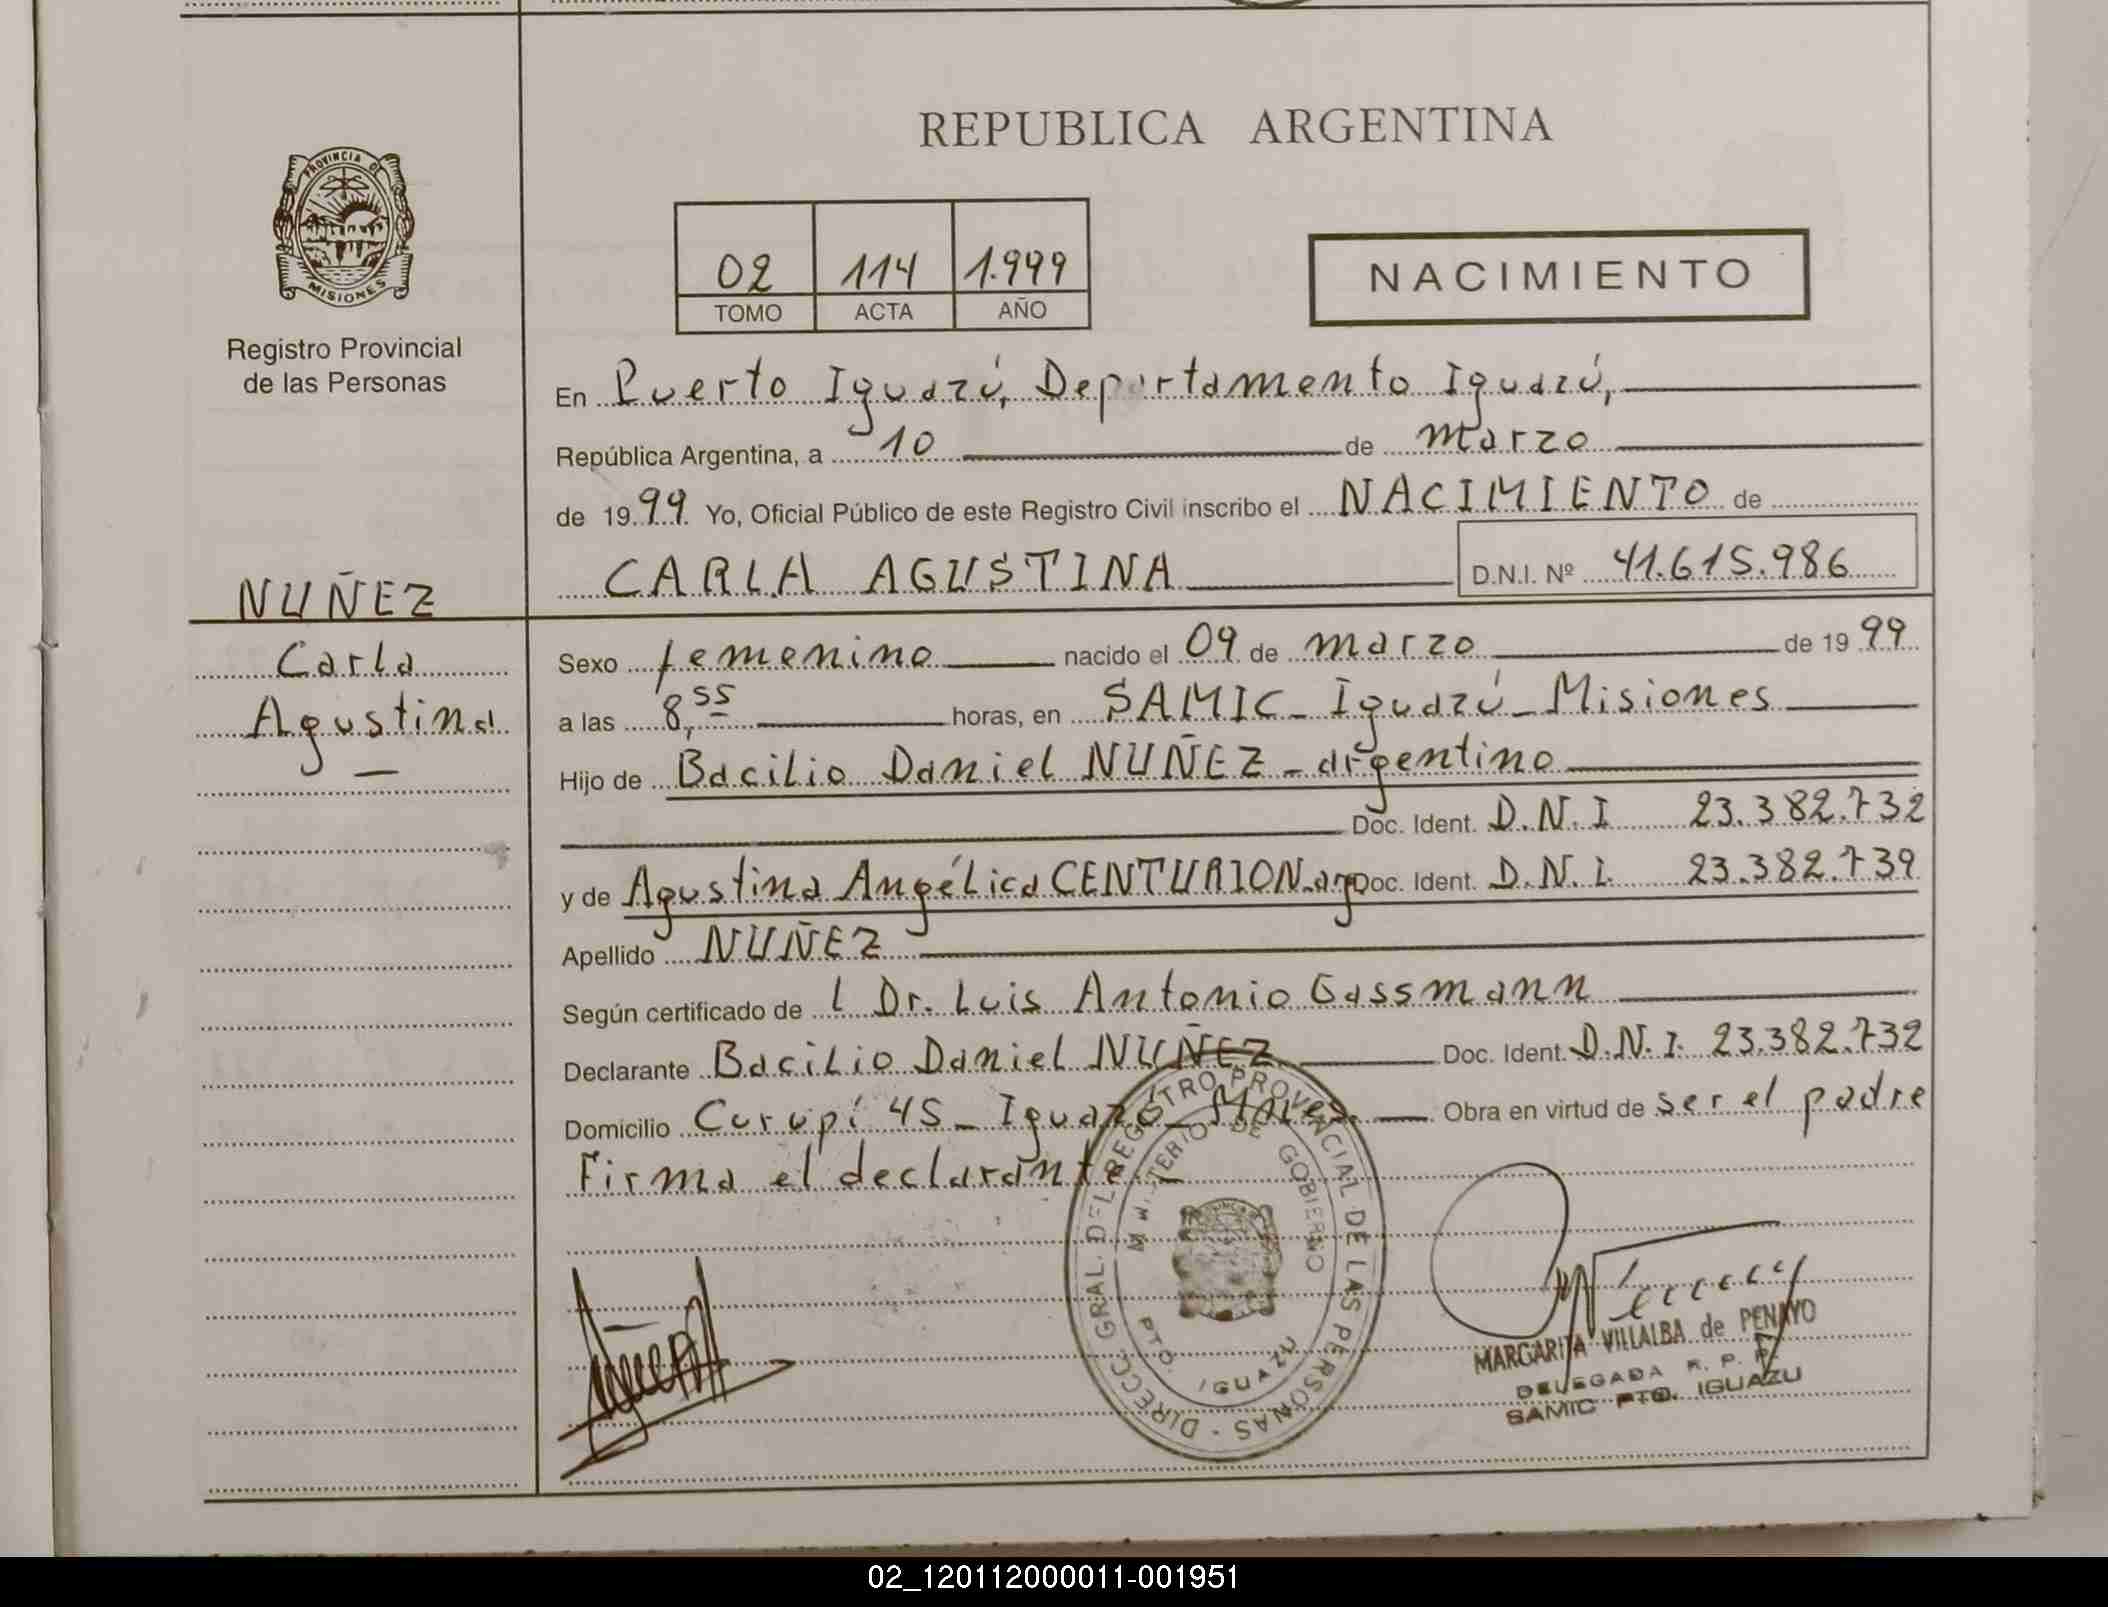 REPUBLICA ARGENTINA
PROVINCIA DE
MISIONES
Registro Provincial
de las Personas
02 114 1.999
TOMO ACTA AÑO
NACIMIENTO
En Puerto Iguazú, Departamento Iguazú,
República Argentina, a 10 de marzo
de 1999 Yo, Oficial Público de este Registro Civil inscribo el NACIMIENTO de
CARLA AGUSTINA D.N.I. Nº 41.615.986
NUÑEZ
Carla
Agustina
Sexo femenino nacido el 09 de marzo de 1999
a las 8,55 horas, en SAMIC - Iguazú - Misiones
Hijo de Bacilio Daniel NUÑEZ - argentino
Doc. Ident. D.N.I 23.382.732
y de Agustina Angélica CENTURION - arg Doc. Ident. D.N.I. 23.382.739
Apellido NUÑEZ
Según certificado de l Dr. Luis Antonio Gassmann
Declarante Bacilio Daniel NUÑEZ Doc. Ident. D.N.I. 23.382.732
Domicilio Curupí 45 - Iguazú - Mnes. Obra en virtud de ser el padre
Firma el declarante -
DIRECC. GRAL. DEL REGISTRO PROVINCIAL DE LAS PERSONAS -
MINISTERIO DE GOBIERNO
PTO. IGUAZU
MARGARITA VILLALBA de PENAYO
DELEGADA R. P. P.
SAMIC PTO. IGUAZU
02_120112000011-001951